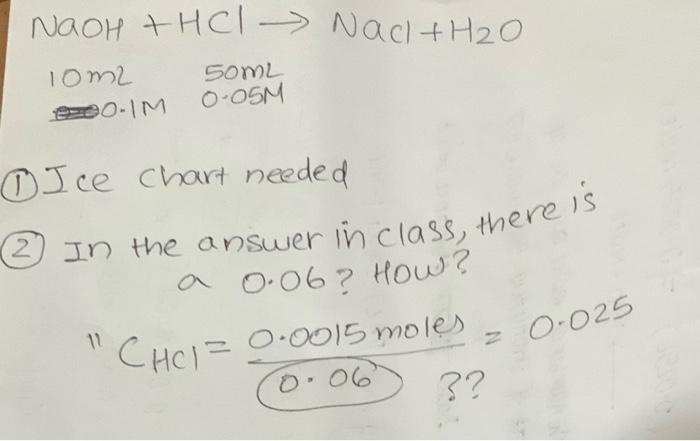 NaOH + HCl → Nacl + H2O
10mL 50mL
0.1M 0.05M
① Ice chart needed
② In the answer in class, there is
a 0.06? How?
" CHCl = 0.0015 moles = 0.025
0.06 ??